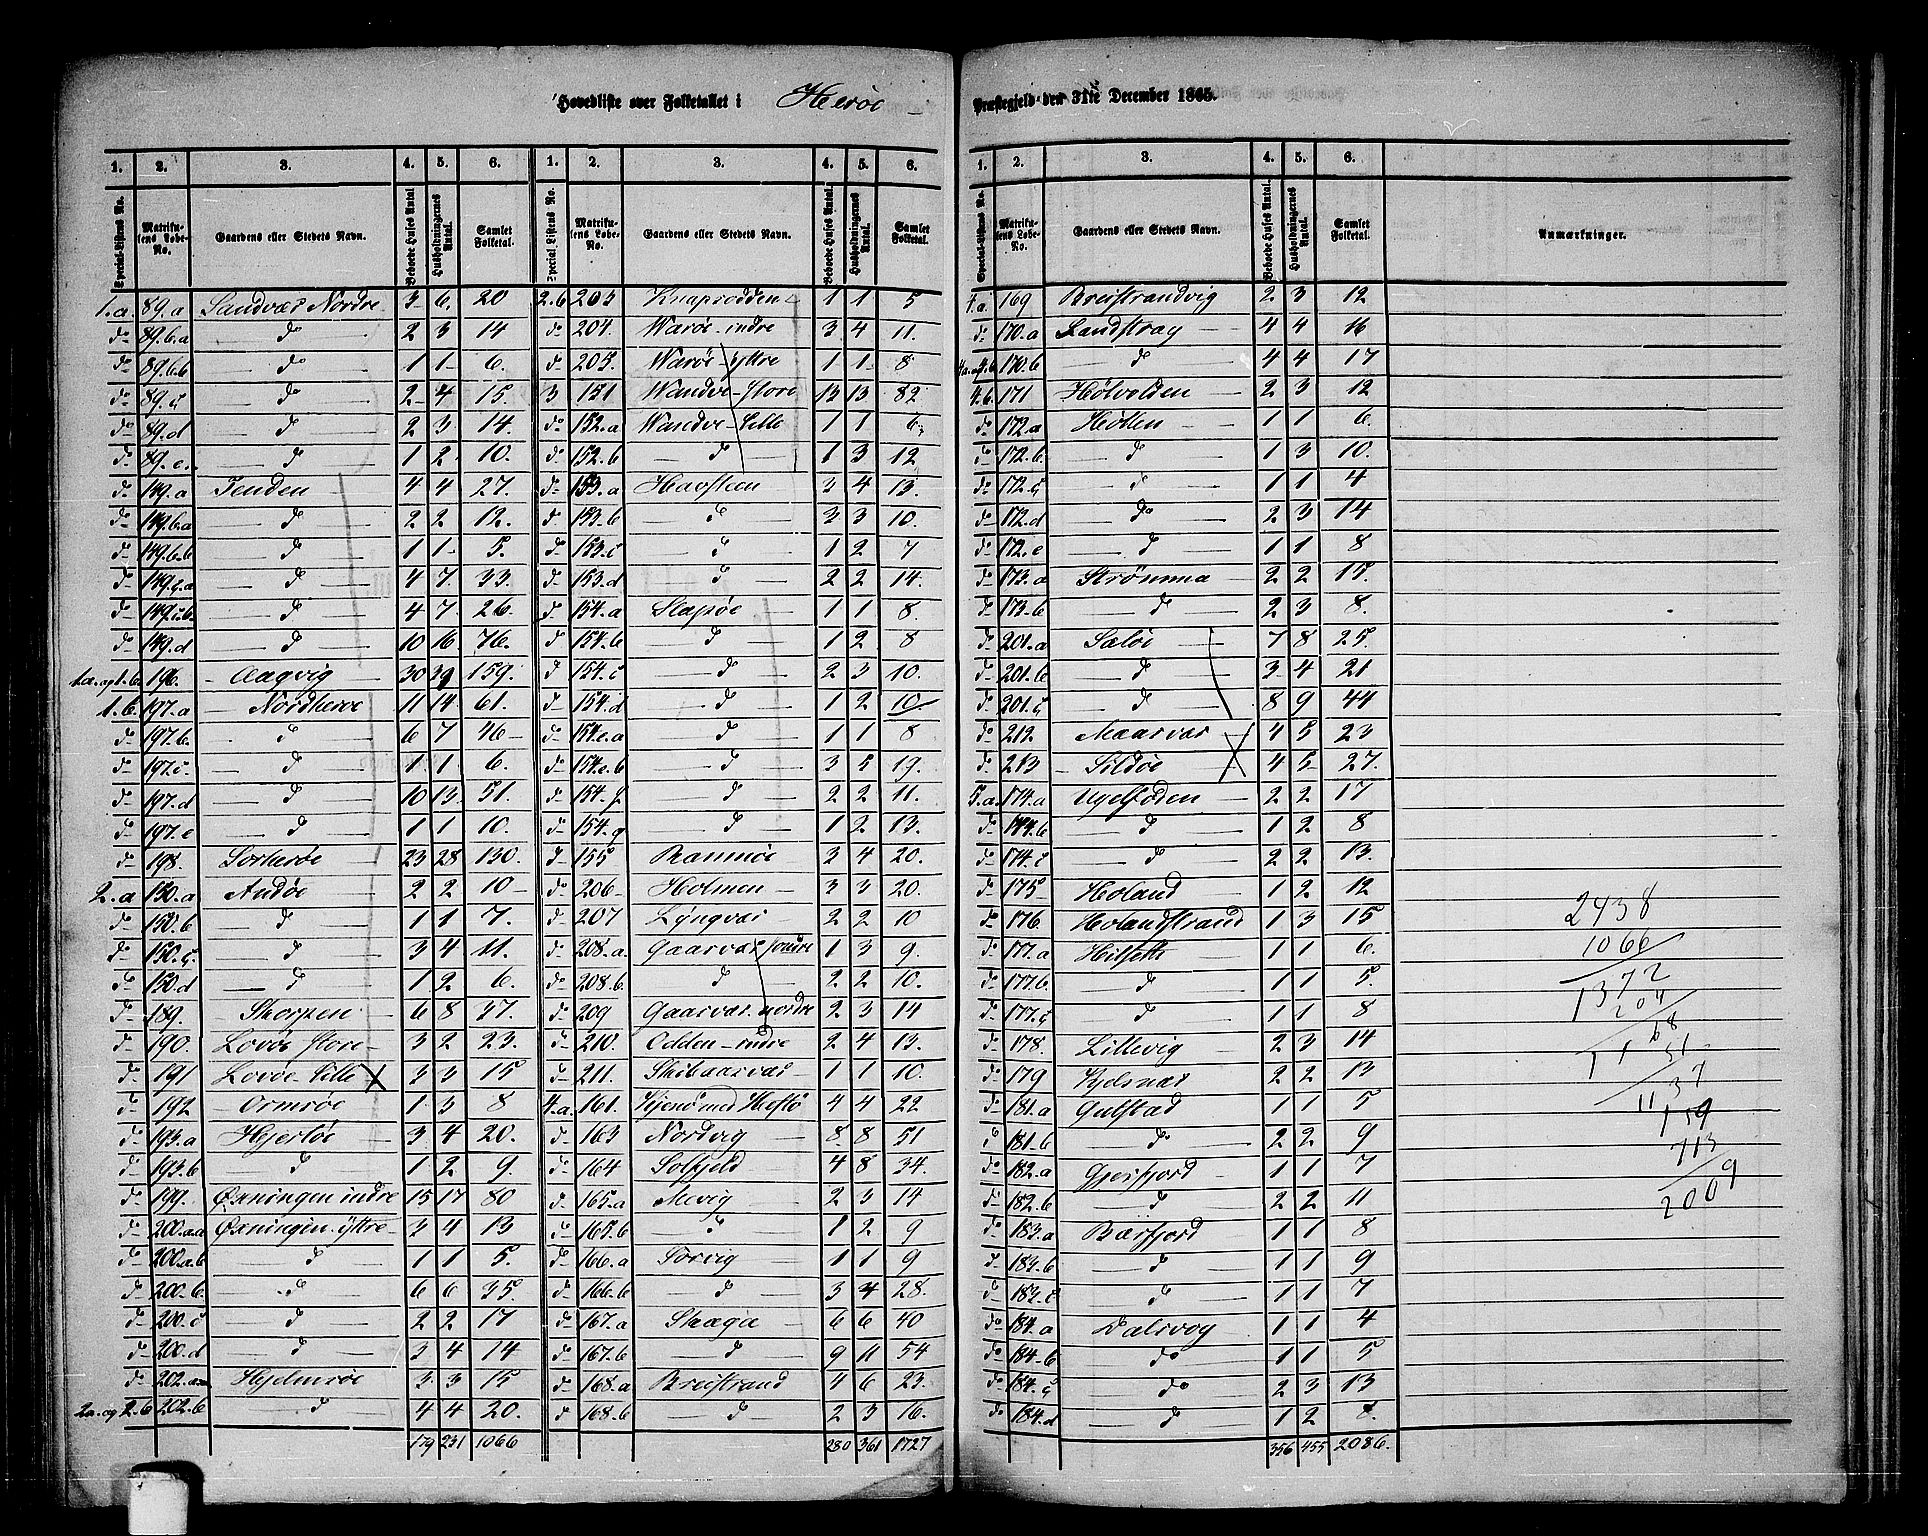 Hovedliste over Folketallet i Herøe Præstegjeld den 31te December 1865.
1. 2. 3. 4. 5. 6. 1. 2. 3. 4. 5. 6.
Special-Listens No. Matrikulens Løbe-No. Gaardens eller Stedets Navn. Beboede Huses Antal. Husholdningernes Antal. Samlet Folketal. Special Listens No. Matrikulens Løbe-No. Gaardens eller Stedets Navn. Beboede Huses Antal. Husholdningernes Antal. Samlet Folketal.
1.a 89.a Sandvær Nordre 3 6 20 2.b 203 Knaprodden 1 1 5
do 89.b.a do 2 3 14 do 204 Warøe indre 3 4 11.
do 89.b.b do 1 1 6. do 205. Warøe ÿttre 1 1 8
do 89.c do 2 4 15. 3 151 Wandve store 13 13 82
do 89.d do 2 3 14. do 152.a Wandve Lille 1 1 6
do 89.e do 1 2 10. do 152.b do 1 3 12
do 149.a Tenden 4 4 27. do 153.a Havsteen 3 4 13.
do 149.b.a do 2 2 12. do 153.b do 3 3 10.
do 149.b.b do 1 1 5. do 153.c do 1 2 7
do 149.c.a do 4 7 33. do 153.d do 2 2 14.
do 149.c.b do 4 7 26. do 154.a Slapøe 1 1 8
do 149.d do 10 16 76. do 154.b do 1 2 8
1a. og 1.b 196. Aagvig 30 39 159. do 154.c do 2 3 10.
1.b 197.a Nordherøe 11 14 61. do 154.d do 1 2 10.
do 197.b. do 6 7 46 do 154.e.a do 1 1 8
do 197.c. do 1 1 6. do 154.e.b do 3 5 19.
do 197.d do 10 13 51. do 154.f do 2 2 11.
do 197.e do 1 1 10. do 154.g do 1 2 13.
do 198. Sørherøe 23 28 130. do 155 Brannøe 3 4 20.
2.a 150.a Andøe 2 2 10 do 206 Holmen 3 3 20.
do 150.b do 1 1 7. do 207 Lÿngvær 2 2 10
do 150.c do 3 4 11. do 208.a Gaasvær søndre 1 3 9.
do 150.d do 1 2 6. do 208.b. do 2 2 10.
do 189. Skorpen 6 8 37. do 209 Gaasvær nordre 2 3 14
do 190. Lovøe store 3 2 23. do 210. Odden indre 2 4 13.
do 191 Lovøe Lille X 3 3 15 do 211. Skibaasvær 1 1 10.
do 192 Ormsøe 1 3 8 4.a. 161. 4 4 22
do 193.a Hjertøe 3 4 20. do 163 Nordvig 8 8 51
do 193.b do 1 2 9. do 164 Solfjeld 4 8 34.
do 199. Øxningen indre 15 17 80 do 165.a 2 3 14
do 200.a.a Øxningen ÿttre 3 4 13 do 165.b do 1 2 9
do 200.a.b do 1 1 5. do 166.a Sørvig 1 1 9
do 200.b. do 6 6 35. do 166.b do 3 4 28.
do 200.c do 2 2 17 do 167.a Skaga 6 6 40
do 200.d do 3 4 14 do 167.b do 9 11 54
do 202.a Hjelmsøe 3 3 15 do 168.a Breistrand 4 6 23.
2a. og 2.b 202.b do 4 4 20. do 168.b do 2 3 16.
179 231 1066 280 361 1727
1. 2. 3. 4. 5. 6.
Special-Listens No. Matrikulens Løbe-No. Gaardens eller Stedets Navn. Beboede Huses Antal. Husholdningernes Antal. Samlet Folketal. Anmærkninger.
4.a 169 Breistrandvig 2 3 12
do 170.a Sandstrag 4 4 16
4a. og 4.b 170.b do 4 4 17
4.b. 171 Hølvolden 2 3 12
do 172.a Høtten 1 1 6.
do 172.b. do 1 3 10.
do 172.c do 1 1 4
do 172.d do 2 3 14
do 172.e do 1 1 8
do 173.a Strømma 2 2 15.
do 173.b do 2 3 8.
do 201.a Saløe 7 8 25.
do 201.b do 3 4 21
do 201.c do 8 9 44
do 212 Maasvær 4 5 23
do 213 Sildøe X 4 5 27.
5.a. 174.a Ugelfoden 2 2 17
do 174.b do 1 2 8
do 174.c do 2 2 13.
do 175 Holand 1 2 12
do 176 Holandstrand 1 3 15
do 177.a Hilsetk 1 1 6.
do 177.b. do 1 1 5.
do 177.c do 1 1 8
do 178. Lillevig 2 3 14
do 179 2 2 13
do 181.a Gulstad 1 1 5
do 181.b do 2 2 9
do 182.a Gjesfjord 1 1 7
do 182.b do 2 2 11
do 183.a Bærfjord 1 1 8
do 183.b do 1 1 9
do 183.c do 1 1 7
do 184.a Dalsvog 1 1 4
do 184.b do 1 1 5
do 184.c do 2 3 13
do 184.d do 1 2 8.
356 455 2086.
2438
1066
1372
204
68
1151
37
113
159
713
2009